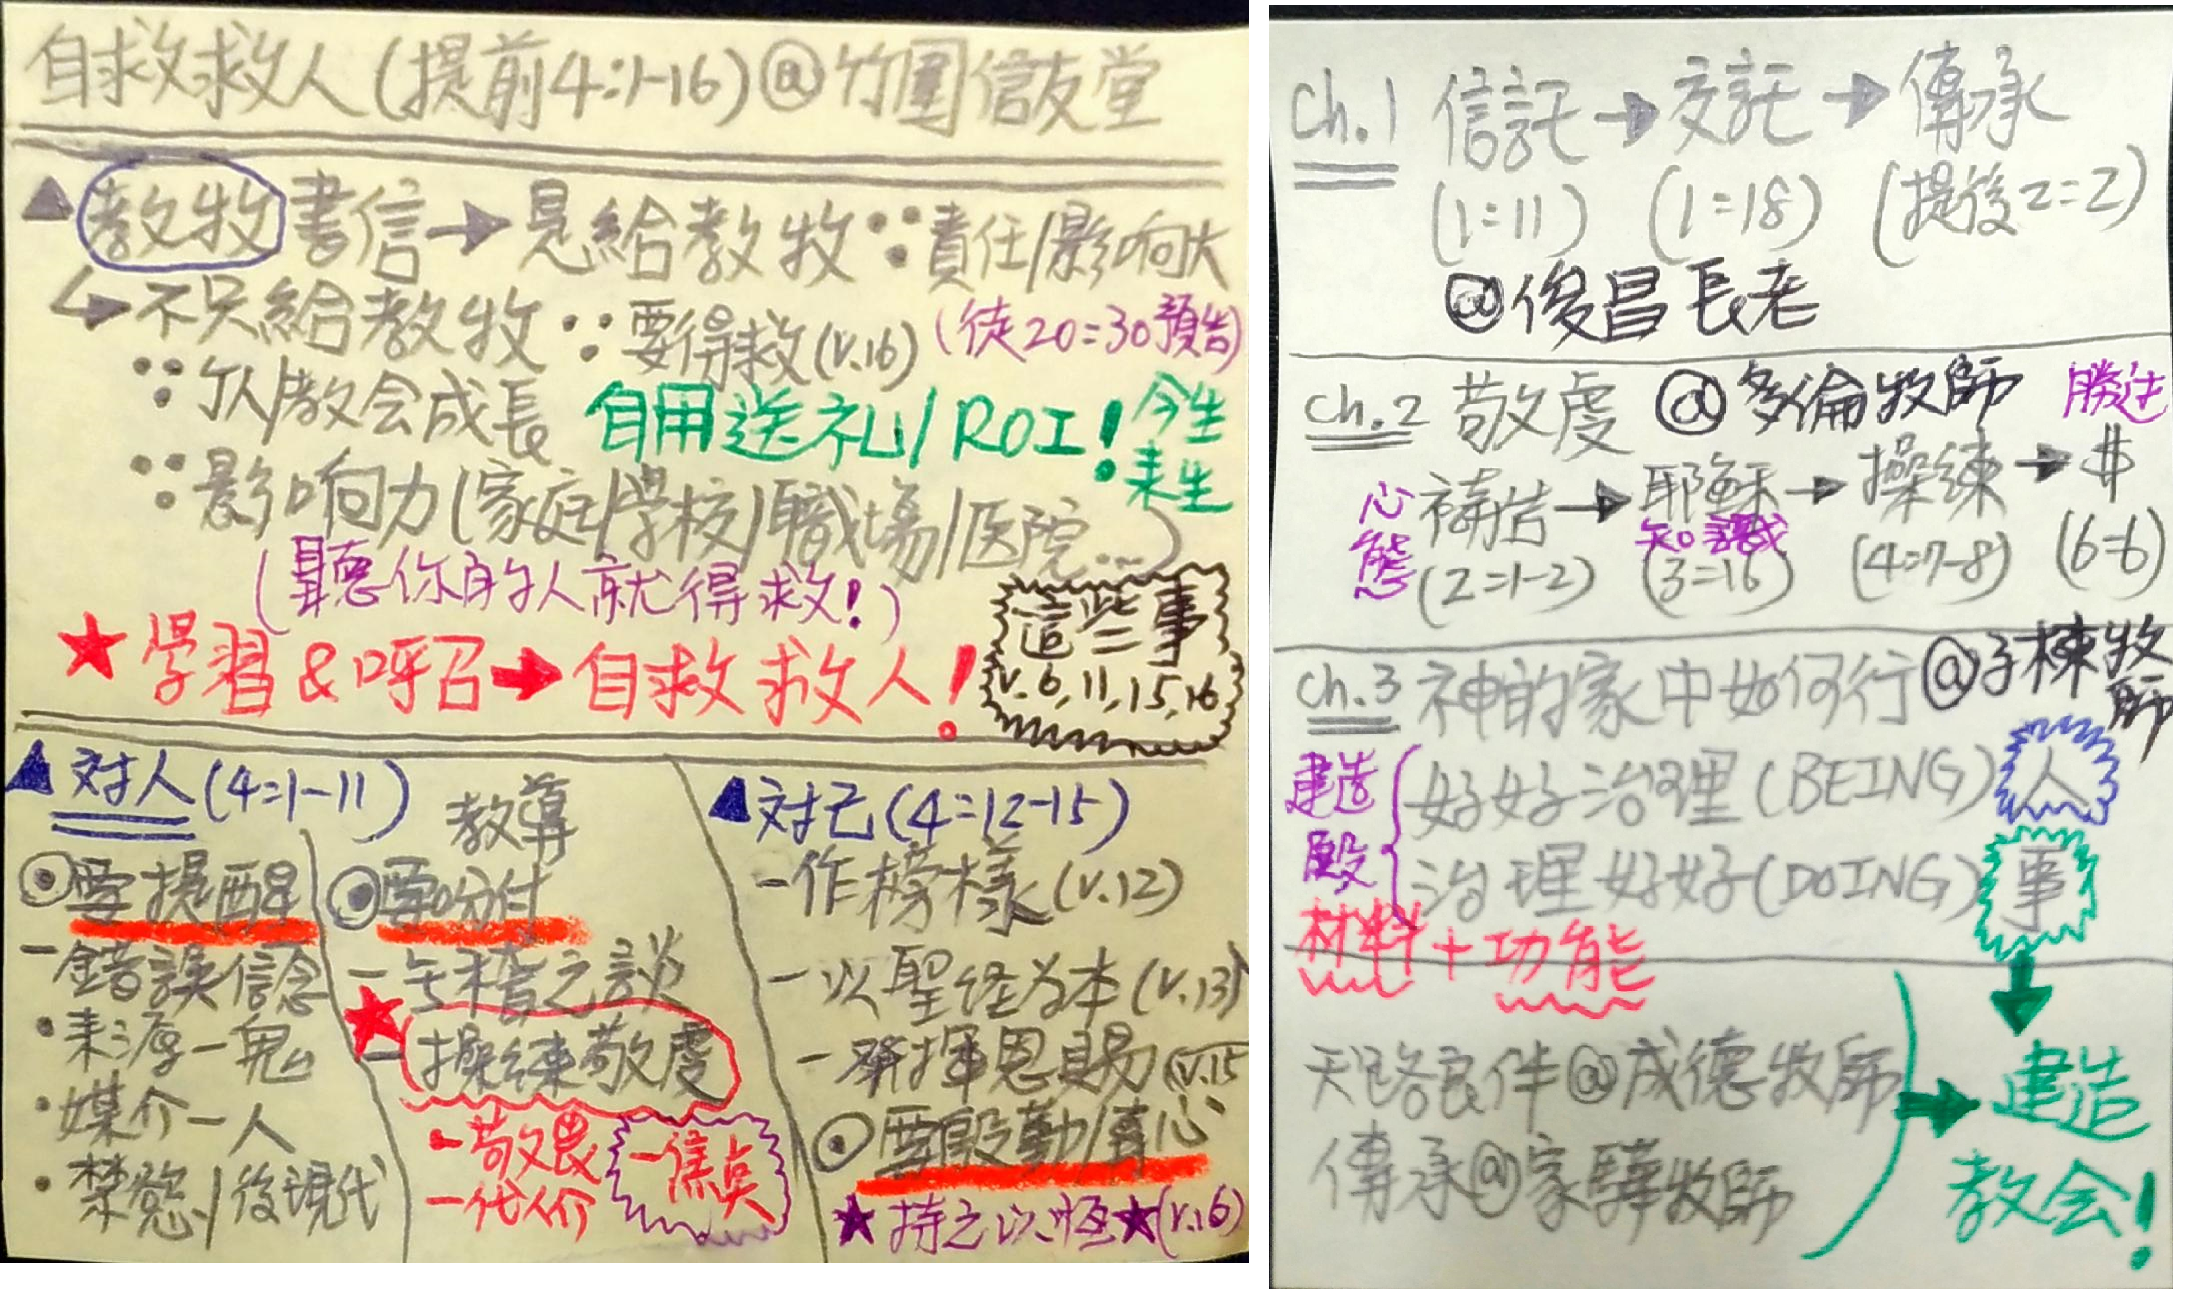 自救救人(提前4:1-16)@竹圍信友堂
▲教牧書信→是給教牧∵責任/影响大
↳不只給教牧∵要得救(v.16)(徒20:30預告)
∵个人/教会成長 自用送礼/ROI!今生
來生
∵影响力(家庭/学校/職場/医院...)
(聽你的人就得救!)
★学習&呼召→自救救人!
這些事
v.6,11,15,16
▲対人(4:1-11)
⊙要提醒
-錯誤信念
•来源-鬼
•媒介-人
•禁慾/後現代
教導
⊙要吩咐
-无稽之談
★-操練敬虔
-敬畏
-代价
-焦点
▲対己(4:12-15)
-作榜樣(v.12)
-以聖经为本(v.13)
-發揮恩賜(v.15
⊙要殷勤/專心
★持之以恆★(v.16)
Ch.1 信託→交託→傳承
(1:11) (1:18) (提後2:2)
@俊昌長老
Ch.2 敬虔 @多倫牧師
心態 禱告→耶穌→操練→$
知識
(2:1-2) (3:16) (4:7-8) (6:6)
Ch.3 神的家中如何行@子棟牧師
建造 好好治理(BEING) 人
殿 治理好好(DOING) 事
材料+功能
天路良伴@成德牧師
傳承@家驊牧師
→建造
教会!